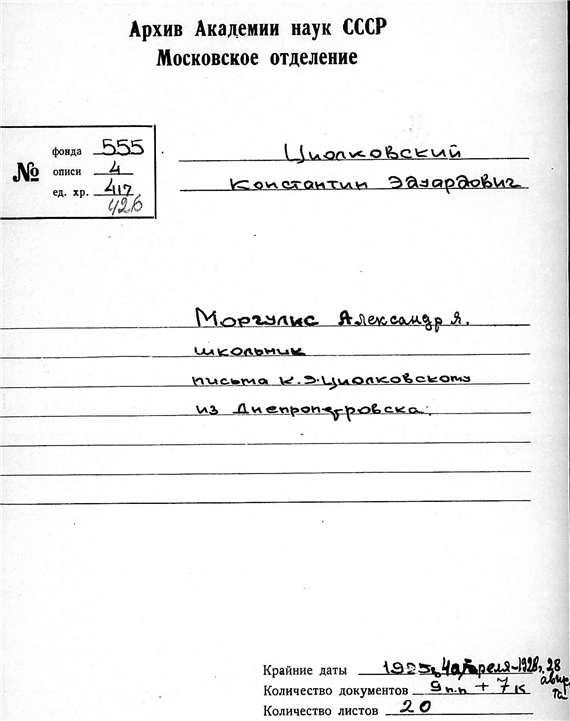 Архив Академии наук СССР
Московское отделение
№
фонда 555
описи 4
ед. хр. 417
426
Циолковский
Константин Эдуардович
Моргулис Александр Я.
школьник
письма К.Э.Циолковскому
из Днепропетровска.
Крайние даты 1925г. 4 апреля-1928г. 28 августа
Количество документов 9п.п + 7к
Количество листов 20